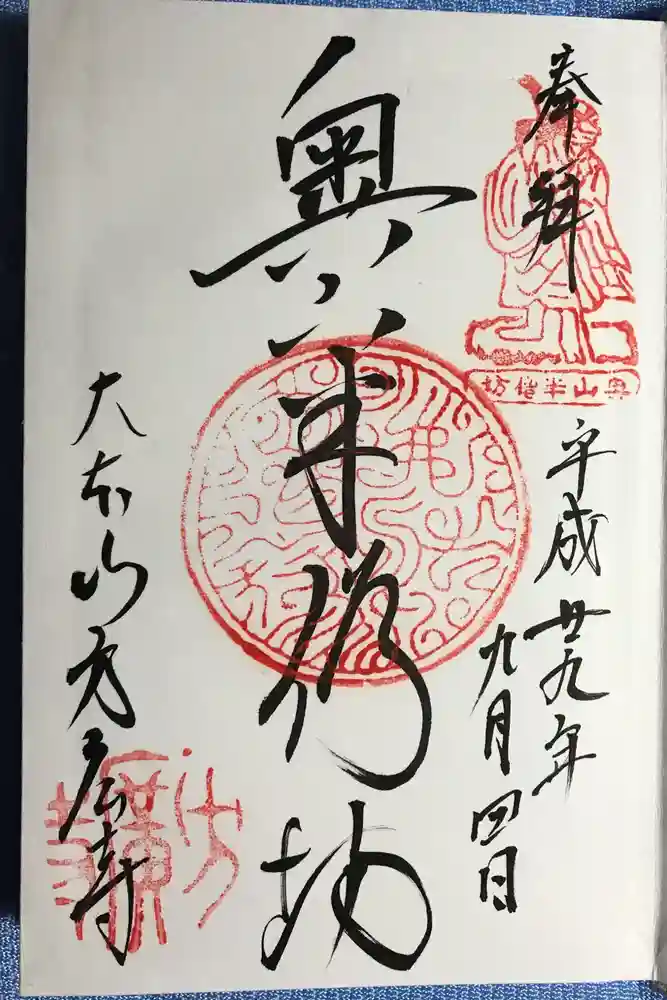 奉拝
奥山半僧坊
平成廿九年
九月四日
奥半僧坊
大本山方広寺